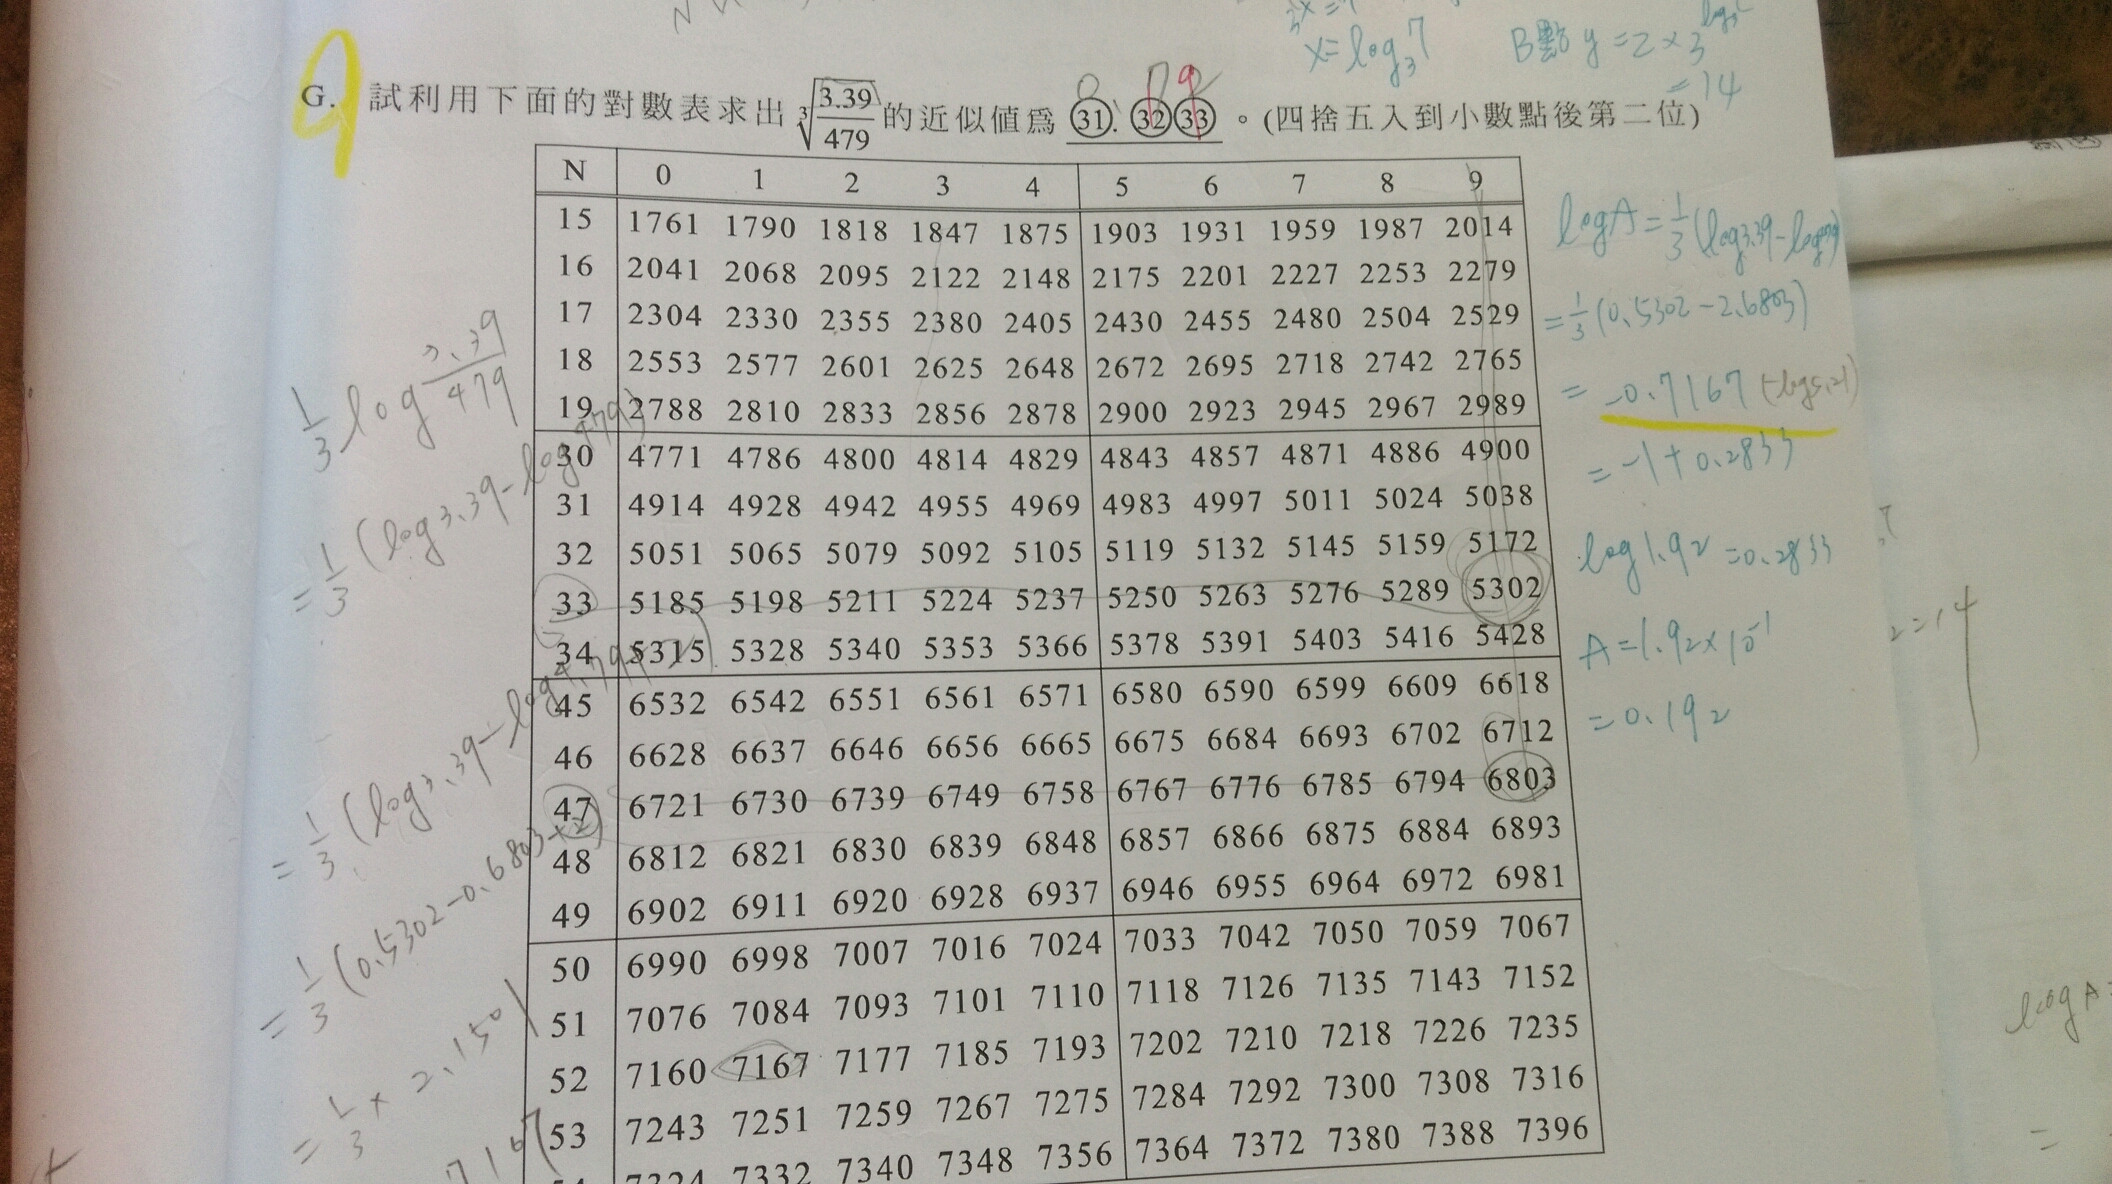 x=log₃7
B點 y=2×3
=14
G. 試利用下面的對數表求出 ∛(3.39/479) 的近似值為 ㉛.㉜㉝。(四捨五入到小數點後第二位)
N 0 1 2 3 4 5 6 7 8 9
15 1761 1790 1818 1847 1875 1903 1931 1959 1987 2014
16 2041 2068 2095 2122 2148 2175 2201 2227 2253 2279
17 2304 2330 2355 2380 2405 2430 2455 2480 2504 2529
18 2553 2577 2601 2625 2648 2672 2695 2718 2742 2765
19 2788 2810 2833 2856 2878 2900 2923 2945 2967 2989
30 4771 4786 4800 4814 4829 4843 4857 4871 4886 4900
31 4914 4928 4942 4955 4969 4983 4997 5011 5024 5038
32 5051 5065 5079 5092 5105 5119 5132 5145 5159 5172
33 5185 5198 5211 5224 5237 5250 5263 5276 5289 5302
34 5315 5328 5340 5353 5366 5378 5391 5403 5416 5428
45 6532 6542 6551 6561 6571 6580 6590 6599 6609 6618
46 6628 6637 6646 6656 6665 6675 6684 6693 6702 6712
47 6721 6730 6739 6749 6758 6767 6776 6785 6794 6803
48 6812 6821 6830 6839 6848 6857 6866 6875 6884 6893
49 6902 6911 6920 6928 6937 6946 6955 6964 6972 6981
50 6990 6998 7007 7016 7024 7033 7042 7050 7059 7067
51 7076 7084 7093 7101 7110 7118 7126 7135 7143 7152
52 7160 7167 7177 7185 7193 7202 7210 7218 7226 7235
53 7243 7251 7259 7267 7275 7284 7292 7300 7308 7316
7332 7340 7348 7356 7364 7372 7380 7388 7396
1/3 log 3.39/479
=1/3(log3.39-log479)
=1/3(log3.39-log4.79
=1/3(0.5302-0.6803+2)
=1/3×2.1501
logA=1/3(log3.39-log479)
=1/3(0.5302-2.6803)
=-0.7167(-log5.21)
=-1+0.2833
log1.92=0.2833
A=1.92×10⁻¹
=0.192
=14
logA